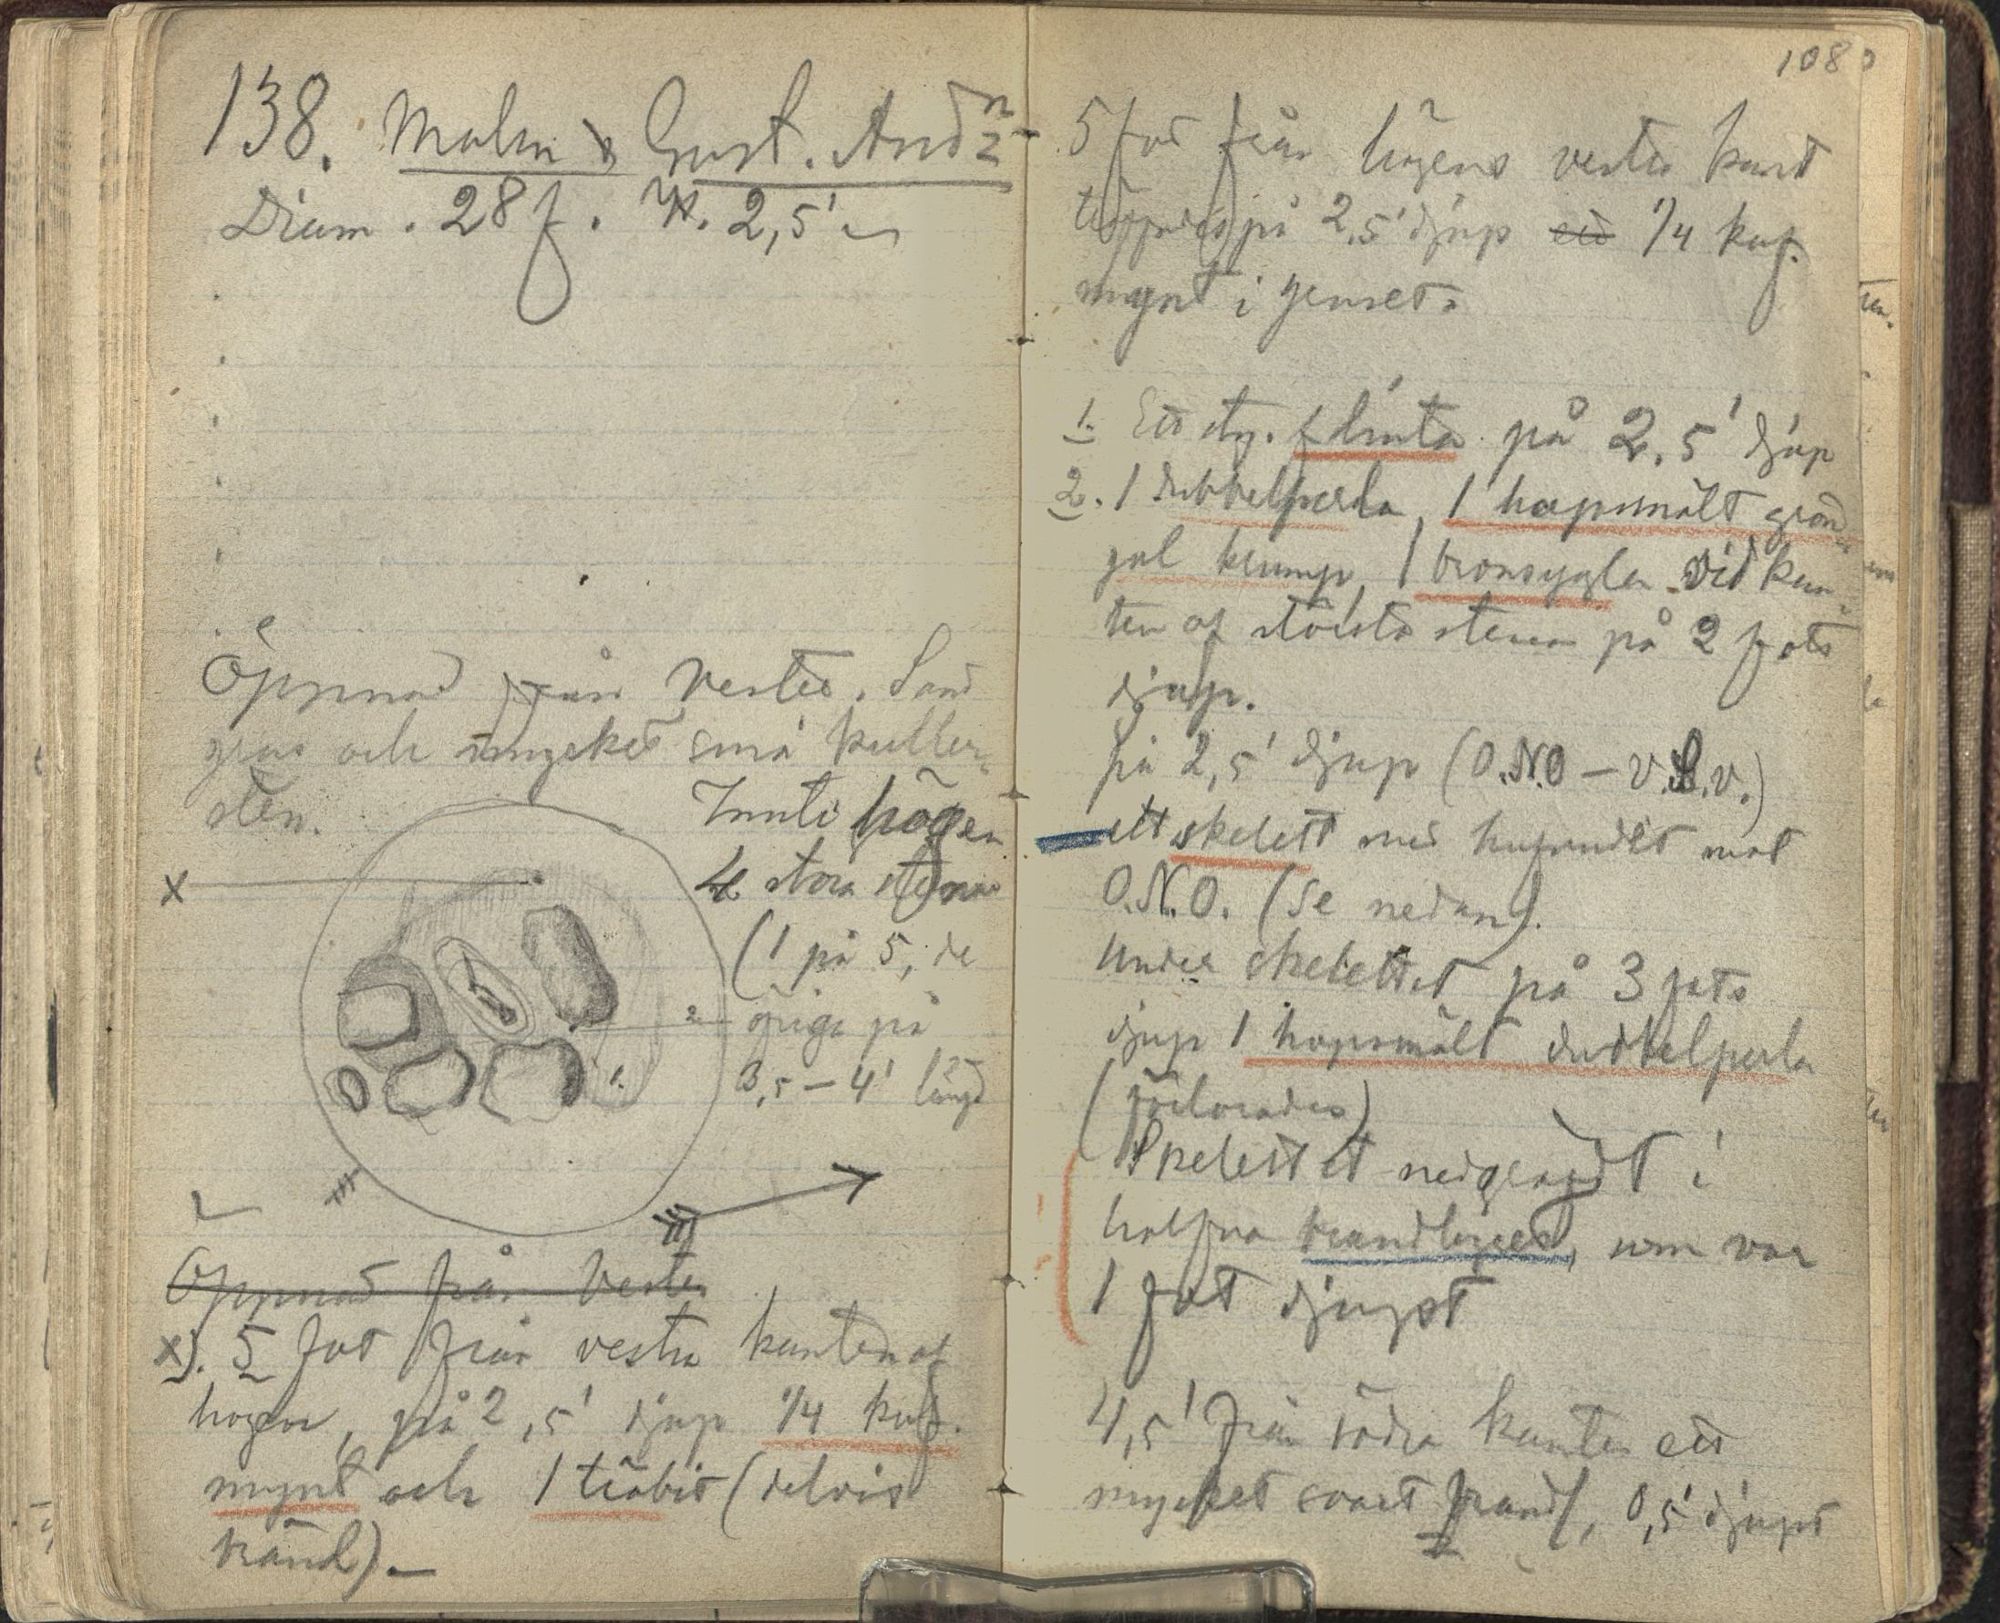 138. Malm Gust. And:n
Diam. 28 f. H. 2,5'
Öppnad från vester. Sand
grus och mycket små kuller-
sten.
Inuti högen
4 stora stenar
(1 på 5, de
öfriga på
3,5 – 4' längd
x
2
1.
Öppnad från vester
x). 5 fot från vestra kanten af
högen, på 2,5' djup 1/4 kuf.
mynt och 1 träbit (delvis
bränd). –
108
5 fot från högens vestra kant
träffades på 2,5' djup ett 1/4 kuf.
mynt i gruset.
1. Ett sty. flinta på 2,5' djup
2. 1 dubbelperla, 1 hopsmält grön-
gul klump, 1 bronsygla vid kan-
ten af största stenen på 2 fots
djup.
På 2,5' djup (O.N.O – V.S.V.)
ett skelett med hufvudet mot
O.N.O. (Se nedan).
Under skelettet på 3 fots
djup 1 hopsmält dubbelperla
(förlorades)
Skelettet nedgräfdt i
halfva brandlagret, som var
1 fot djupt
4,5' från södra kanten ett
mycket svart brandl, 0,5' djupt